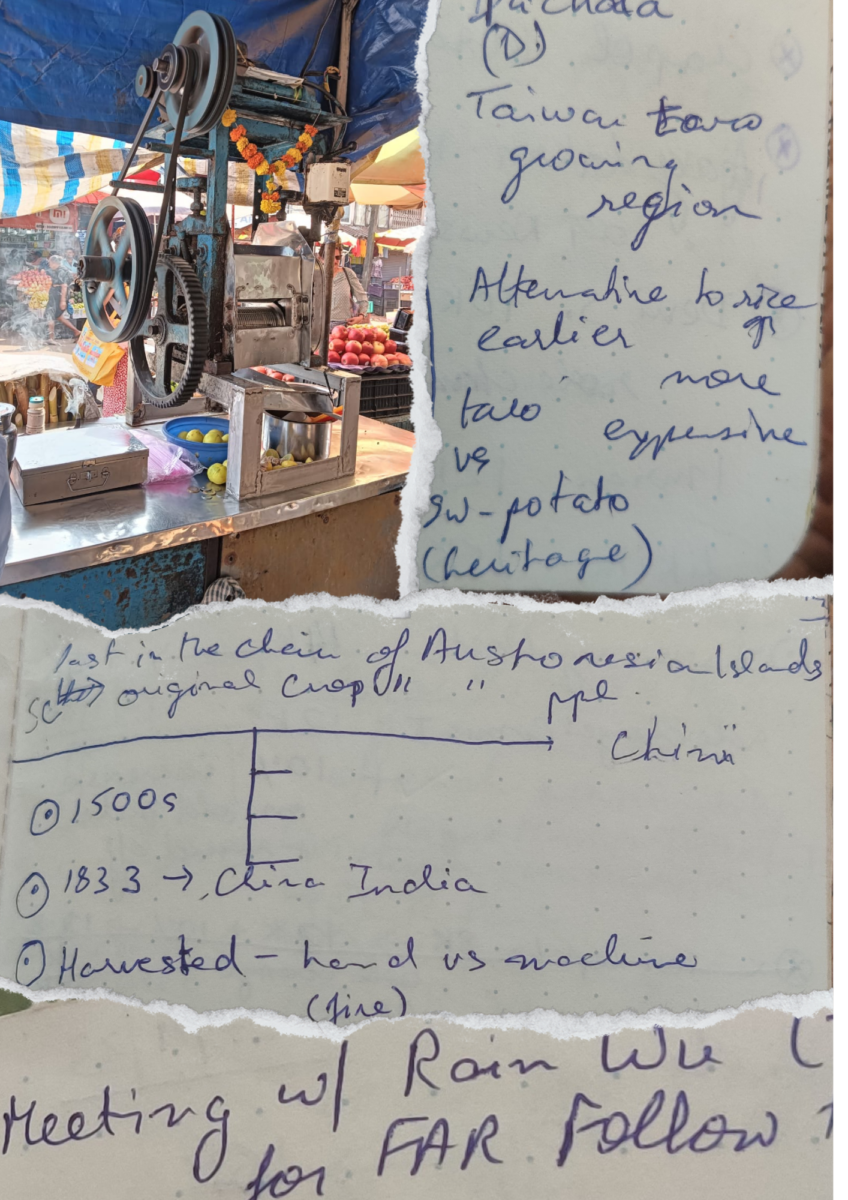 (D)
Taiwan taro
growing
region
Alternative to rice
earlier
more
taro
expensive
vs
sw-potato
(heritage)
last in the chain of Austronesian Islands
SC original crop " " ppl.
China
1500s
1833 → China India
Harvested - hand vs machine
(fire)
Meeting w/ Rain Wu (
for FAR Follow